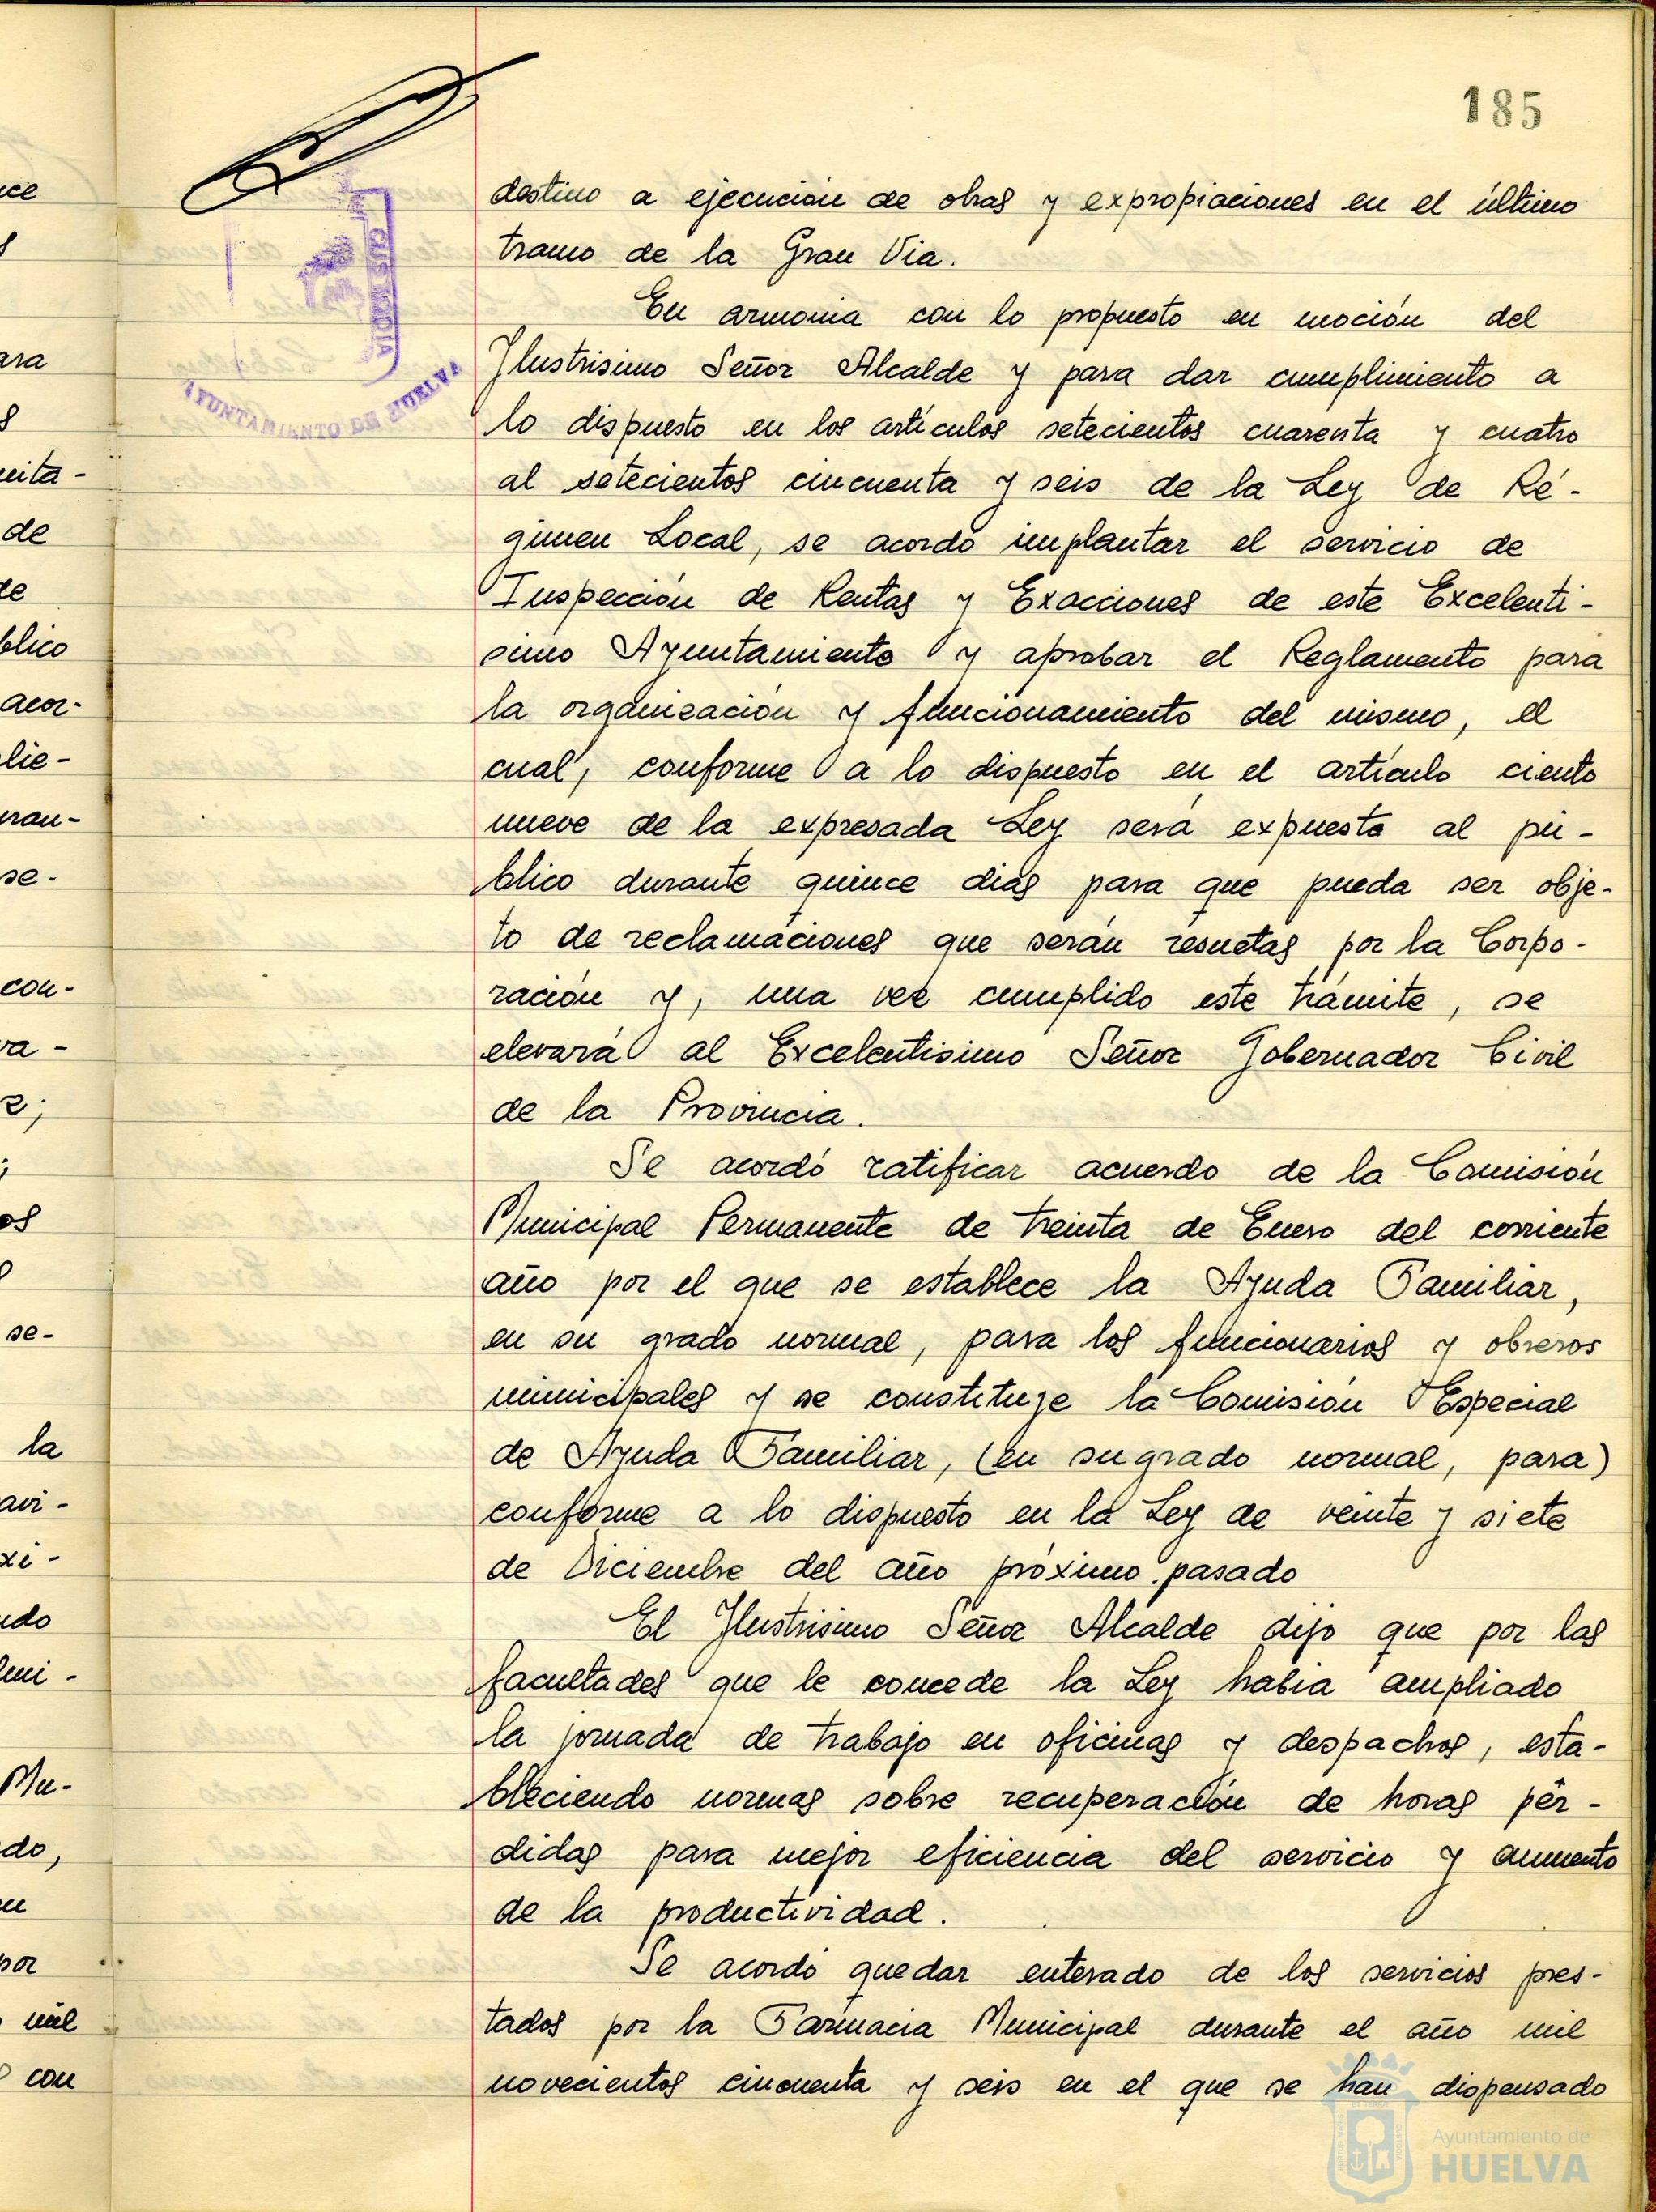 185
destino a ejecución de obras y expropiaciones en el último
tramo de la Gran Via.
En armonia con lo propuesto en moción del
Ilustrisimo Señor Alcalde y para dar cumplimiento a
lo dispuesto en los artículos setecientos cuarenta y cuatro
al setecientos cincuenta y seis de la Ley de Ré-
gimen Local, se acordó implantar el servicio de
Inspección de Rentas y Exacciones de este Excelenti-
simo Ayuntamiento y aprobar el Reglamento para
la organización y funcionamiento del mismo, el
cual, conforme a lo dispuesto en el artículo ciento
nueve de la expresada Ley será expuesto al pú-
blico durante quince dias para que pueda ser obje-
to de reclamaciones que serán resuetas por la Corpo-
ración y, una vez cumplido este trámite, se
elevará al Excelentisimo Señor Gobernador Civil
de la Provincia.
Se acordó ratificar acuerdo de la Comisión
Municipal Permanente de treinta de Enero del corriente
año por el que se establece la Ayuda Familiar,
en su grado normal, para los funcionarios y obreros
municipales y se constituye la Comisión Especial
de Ayuda Familiar, (en su grado normal, para)
conforme a lo dispuesto en la Ley de veinte y siete
de Diciembre del año próximo pasado
El Ilustrisimo Señor Alcalde dijo que por las
facultades que le concede la Ley habia ampliado
la jornada de trabajo en oficinas y despachos, esta-
bleciendo normas sobre recuperación de horas pér-
didas para mejor eficiencia del servicio y aumento
de la productividad.
Se acordó quedar enterado de los servicios pres-
tados por la Farmacia Municipal durante el año mil
novecientos cincuenta y seis en el que se han dispensado
CUSTODIA
AYUNTAMIENTO DE HUELVA
ara
de
blico
acor-
se-
con-
se-
la
Mu-
do,
por
mil
con
Ayuntamiento de
HUELVA